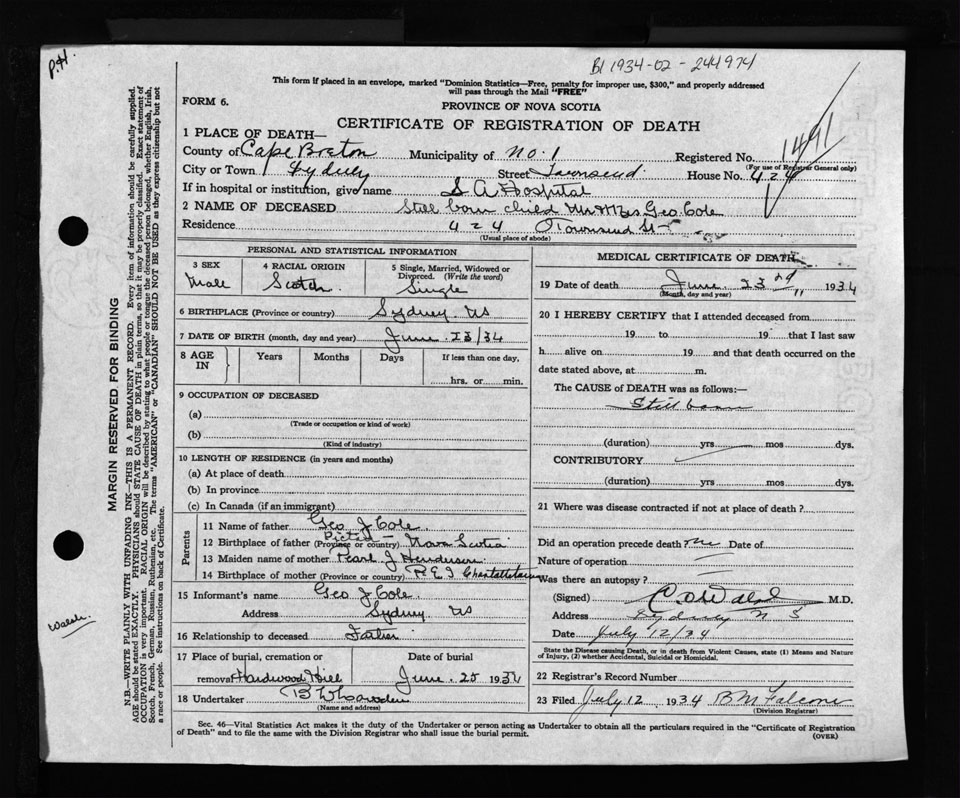 P.H.
B1 1934-02-244974
This form if placed in an envelope, marked "Dominion Statistics—Free, penalty for improper use, $300," and properly addressed
will pass through the Mail "FREE"
FORM 6.
PROVINCE OF NOVA SCOTIA
CERTIFICATE OF REGISTRATION OF DEATH
1491
1 PLACE OF DEATH—
County of Cape Breton Municipality of No. 1 Registered No.
(For use of Registrar General only)
City or Town Sydney Street Townsend House No. 424
If in hospital or institution, give name S A Hospital
2 NAME OF DECEASED Still born child Mr & Mrs Geo. Cole
Residence 424 Townsend St
(Usual place of abode)
PERSONAL AND STATISTICAL INFORMATION
3 SEX
Male
4 RACIAL ORIGIN
Scotch
5 Single, Married, Widowed or
Divorced. (Write the word)
Single
6 BIRTHPLACE (Province or country) Sydney. NS
7 DATE OF BIRTH (month, day and year) June 23/34
8 AGE IN
Years Months Days If less than one day,
hrs. or min.
9 OCCUPATION OF DECEASED
(a)
(Trade or occupation or kind of work)
(b)
(Kind of industry)
10 LENGTH OF RESIDENCE (in years and months)
(a) At place of death
(b) In province
(c) In Canada (if an immigrant)
Parents
11 Name of father Geo J Cole
12 Birthplace of father (Province or country) Pictou – Nova Scotia
13 Maiden name of mother Pearl J Henderson
14 Birthplace of mother (Province or country) P.E.I Charlottetown
15 Informant's name Geo J Cole
Address Sydney NS
16 Relationship to deceased Father
17 Place of burial, cremation or Date of burial
removal Hardwood Hill June 25 1934
18 Undertaker
(Name and address)
MEDICAL CERTIFICATE OF DEATH
19 Date of death June 23rd 1934
(Month, day and year)
20 I HEREBY CERTIFY that I attended deceased from
19 to 19 that I last saw
h alive on 19 and that death occurred on the
date stated above, at m.
The CAUSE of DEATH was as follows:—
Stillborn
(duration) yrs mos dys.
CONTRIBUTORY
(duration) yrs mos dys.
21 Where was disease contracted if not at place of death?
Did an operation precede death Date of
Nature of operation
Was there an autopsy?
(Signed) M.D.
Address Sydney N S
Date July 12/34
State the Disease causing Death, or in death from Violent Causes, state (1) Means and Nature
of Injury, (2) whether Accidental, Suicidal or Homicidal.
22 Registrar's Record Number
23 Filed July 12 1934 B M Falcon
(Division Registrar)
Sec. 46—Vital Statistics Act makes it the duty of the Undertaker or person acting as Undertaker to obtain all the particulars required in the "Certificate of Registration
of Death" and to file the same with the Division Registrar who shall issue the burial permit.
(OVER)
MARGIN RESERVED FOR BINDING
N.B.—WRITE PLAINLY WITH UNFADING INK—THIS IS A PERMANENT RECORD. Every item of information should be carefully supplied.
AGE should be stated EXACTLY. PHYSICIANS should STATE CAUSE OF DEATH in plain terms, so that it may be properly classified. Exact statement of
OCCUPATION is very important. RACIAL ORIGIN will be described by stating to what people or tongue the deceased person belonged, whether English, Irish,
Scotch, French, German, Russian, Ruthenian, etc. The terms "AMERICAN" or "CANADIAN" SHOULD NOT BE USED as they express citizenship but not
a race or people. See instructions on back of Certificate.
Walsh.